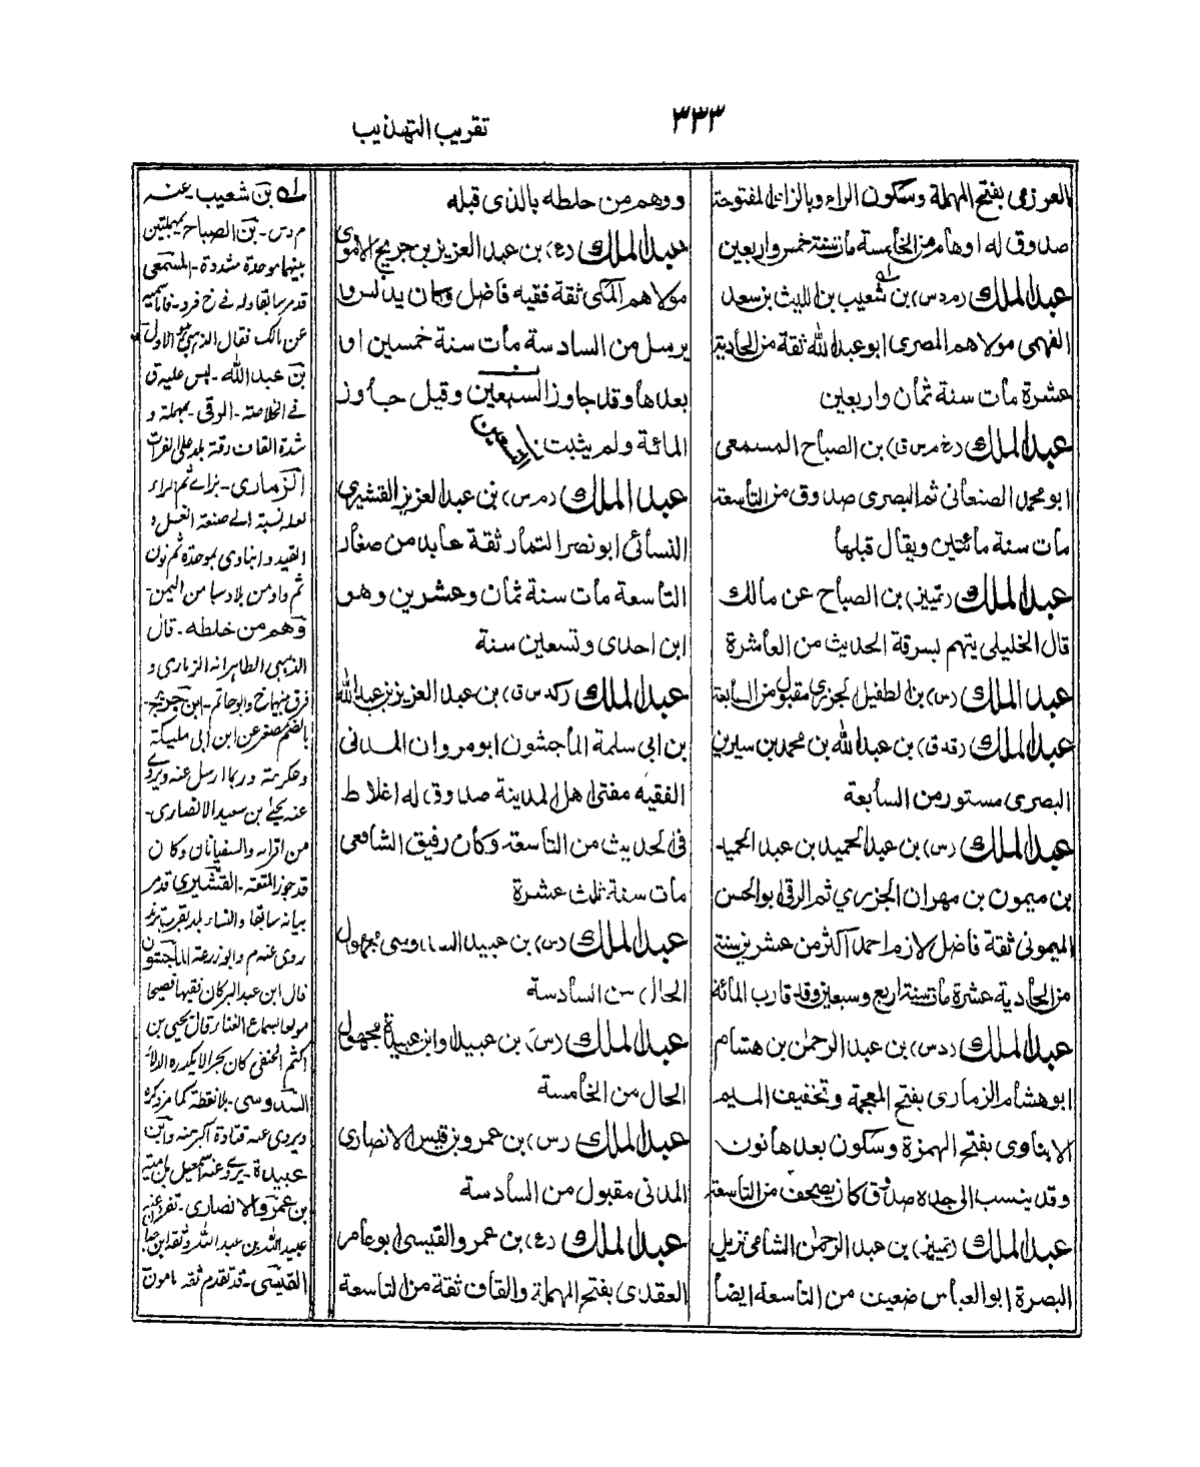 ٣٣٣
تقريب التهذيب
العرزمى بفتح المهملة وسكون الراء وبالزاى المفتوحة
صدوق له اوهام من الخامسة مات سنة خمس واربعين
عبد الملك (م د س) بن شعيب بن الليث بن سعد
الفهمى مولاهم المصرى ابو عبد الله ثقة من الحادية
عشرة مات سنة ثمان واربعين
عبد الملك (خ م س ق) بن الصباح المسمعى
ابو محمد الصنعانى ثم البصرى صدوق من التاسعة
مات سنة مائتين ويقال قبلها
عبد الملك (تمييز) بن الصباح عن مالك
قال الخليلى يتهم بسرقة الحديث من العاشرة
عبد الملك (س) بن الطفيل الجزرى مقبول من السابعة
عبد الملك (قد ق) بن عبد الله بن محمد بن سيرين
البصرى مستور من السابعة
عبد الملك (س) بن عبد الحميد بن عبد الحميد
بن ميمون بن مهران الجزرى ثم الرقى ابو الحسن
الميمونى ثقة فاضل لازم احمد اكثر من عشرين سنة
من الحادية عشرة مات سنة اربع وسبعين وقد قارب المائة
عبد الملك (د س) بن عبد الرحمن بن هشام
ابو هشام الزمارى بفتح المعجمة وتخفيف الميم
الابناوى بفتح الهمزة وسكون بعدها نون
وقد ينسب الى جده صدوق كان يصحف من التاسعة
عبد الملك (تمييز) بن عبد الرحمن الشامى نزيل
البصرة ابو العباس ضعيف من التاسعة ايضاً
ووهم من خلطه بالذى قبله
عبد الملك (ع) بن عبد العزيز بن جريج الاموى
مولاهم المكى ثقة فقيه فاضل وكان يدلس و
يرسل من السادسة مات سنة خمسين او
بعدها وقد جاوز السبعين وقيل جاوز
المائة ولم يثبت
عبد الملك (م س) بن عبد العزيز القشيرى
النسائى ابو نصر التمار ثقة عابد من صغار
التاسعة مات سنة ثمان وعشرين وهو
ابن احدى وتسعين سنة
عبد الملك (كد س ق) بن عبد العزيز بن عبد الله
بن ابى سلمة الماجشون ابو مروان المدنى
الفقيه مفتى اهل المدينة صدوق له اغلاط
فى الحديث من التاسعة وكان رفيق الشافعى
مات سنة ثلث عشرة
عبد الملك (س) بن عبيد السدوسى مجهول
الحال من السادسة
عبد الملك (س) بن عبيد او ابن عبيدة مجهول
الحال من الخامسة
عبد الملك (س) بن عمرو بن قيس الانصارى
المدنى مقبول من السادسة
عبد الملك (ع) بن عمرو القيسى ابو عامر
العقدى بفتح المهملة والقاف ثقة من التاسعة
بن شعيب - عنه
م د س - بن الصباح بمهملتين
بينهما موحدة مشددة - المسمعى
قدم سابقا وله فى خ فرد -
عن مالك نقال الذهبى الاول
بن عبد الله - ليس عليه ق
فى الخلاصة - الرقى - بمهملة و
شدة القاف رقة بلد على الفرات
الزمارى - بزاى ثم الراء
لعله نسبة الى صنعة الغسل و
القيد وابناوى بموحدة ثم نون
ثم واو من بلاد سبا من اليمن -
وهم من خلطه - قال
الذهبى الظاهر انه الزمارى و
فرق بينهما خ وابو حاتم - ابن جريج -
بالضم مصغر عن ابن ابى مليكة
وعكرمة وربما ارسل عنه ويروى
عنه يحيى بن سعيد الانصارى -
من اقرانه والسفيانان وكان
قد جوز المتعة - القشيرى قدم
بيانه سابقا والنساء بلد بقرب
روى عنه م وابو زرعة الماجشون
قال ابن عبد البر كان فقيها فصيحا
مولعا بسماع الغناء قال يحيى بن
اكثم الحنفى كان بحرا لا يكدره الدلاء
السدوسى - بلا نقطة كما مر ذكره
ويروى عنه قتادة اكبر منه وابن
عبيدة - يروى عنه اسمعيل بن امية
بن عمرو الانصارى - تفرد عنه
عبيد الله بن عبد الله وثقه ابن حبا
القيسى - قد تقدم ثقة مامون